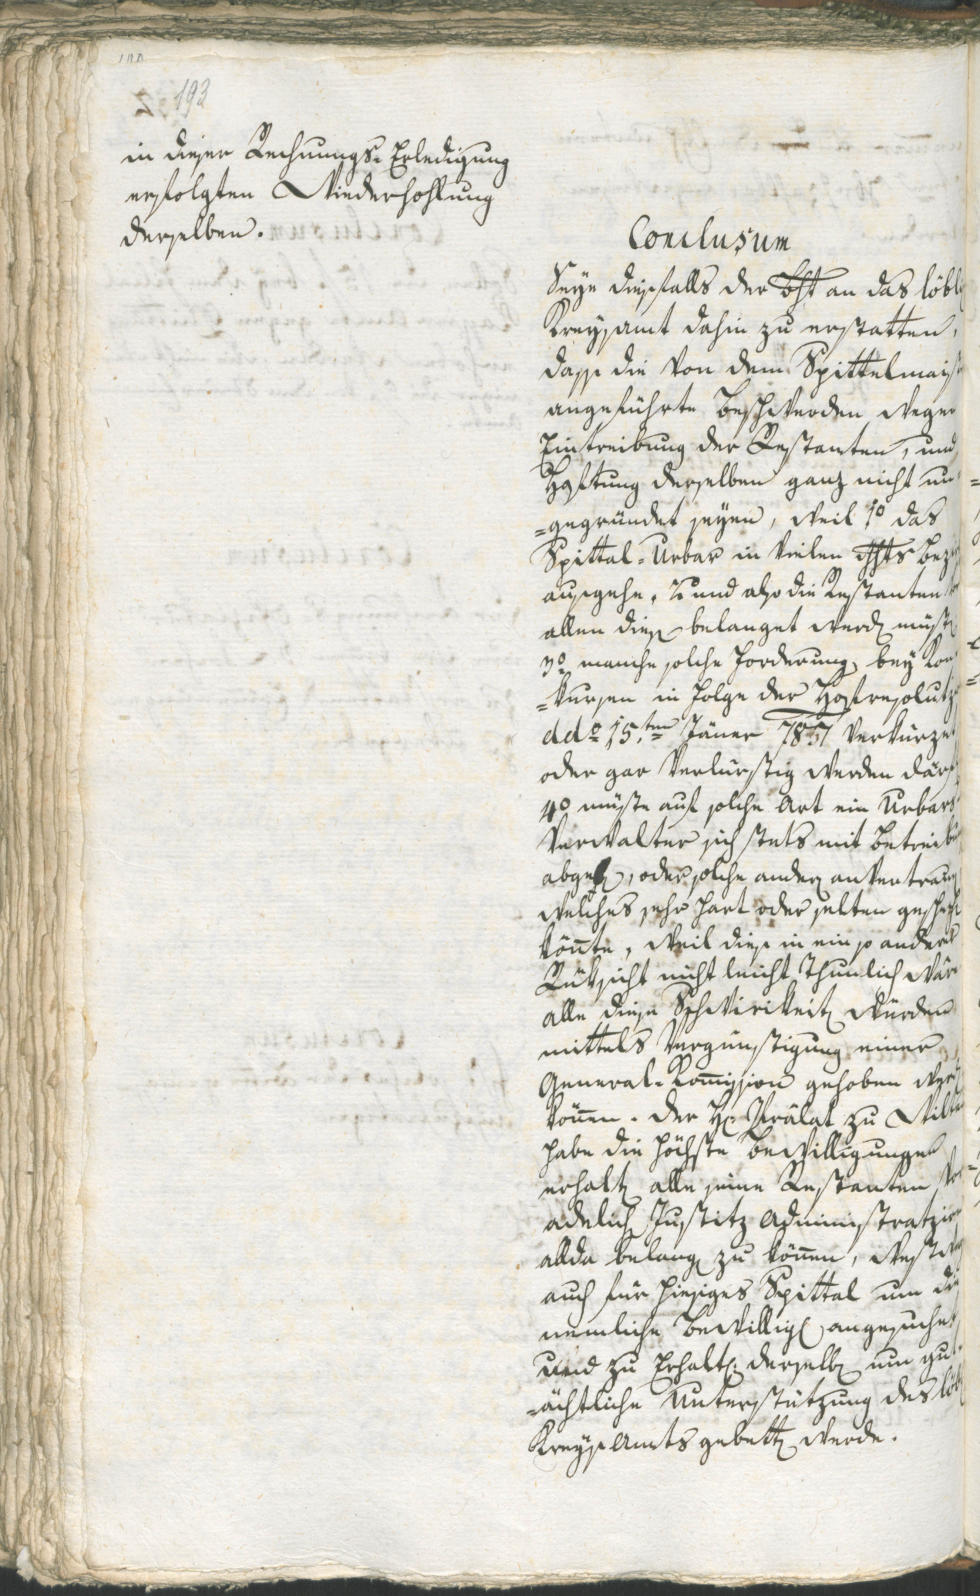 193
in dieser Rechnungs-Erledigung
erfolgten Wiederhohlung
derselben.
Conclusum
Seye diesfalls der bht an das löbl
Kreysamt dahin zu erstatten,
dass die von dem Spittelmaist
angeführte Beschwerden wegen
Eintreibung der Restanten, und
Haftung derselben ganz nicht un
=gegründet seyen, weil 1o das
Spittal-Urbar in vielen
ausgehe, 2 und also die Restanten
allen dies belanget werd müst
3o manche solche Forderung bey Kon
=kursen in Folge der Hofresoluz
ddo 15ten Jäner 787 verkürzet
oder gar verlürstig werden därf
4o müste auf solche Art ein Urbars
Verwalter sich stets mit Betreib
abgeb, oder solche ander anvertrau
welches sehr hart oder selten gescheh
könnte, weil dies in ein so ander
Rüksicht nicht leicht thunlich wär
alle diese Schwirikeit würden
mittels Vergünstigung einer
General-Kommission gehoben werd
können. Der H. Prälat zu Wilt
habe die höchste Bewilligungen
erhalt alle seine Restanten
adelich Justitz Administrazion
allda belang zu können, west
auch für hiesiges Spittal um die
nemliche Bewillig angesuchet
und zu Erhalt derselb um gut
=ächtliche Unterstützung des löb
KreysAmts gebett werde.